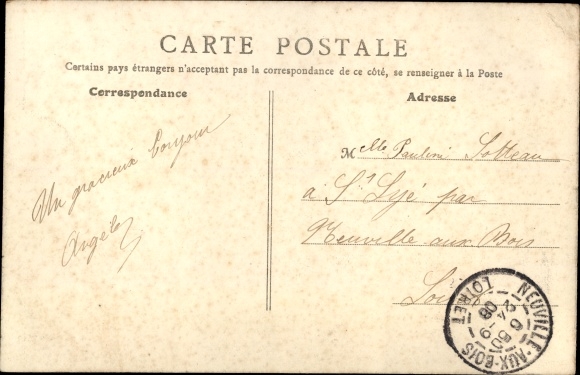 CARTE POSTALE
Certains pays étrangers n'acceptant pas la correspondance de ce côté, se renseigner à la Poste
Correspondance
Adresse
Un gracieux bonjour
Angèle
Mlle Pauline Sotteau
à St Lyé par
Neuville aux Bois
Loiret
NEUVILLE-AUX-BOIS
LOIRET
24 -9
08